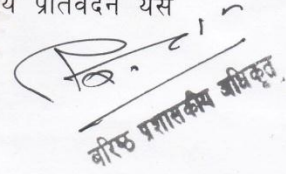 य प्रतिवेदन यस
बरिष्ठ प्रशासकीय अधिकृत